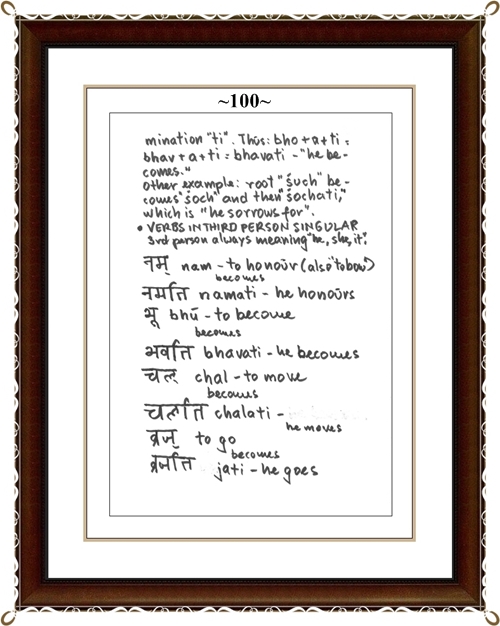 ~100~
mination "ti". Thūs: bho+a+ti =
bhav+a+ti = bhavati - "he be-
comes."
other example: root "śuch" be-
comes "śoch" and then "śochati,"
which is "he sorrows for".
• VERBS IN THIRD PERSON SINGULAR
3rd person always meaning "he, she, it".
नम् nam - to honoūr (also "to bow")
becomes
नमति namati - he honoūrs
भू bhū - to become
becomes
भवति bhavati - he becomes
चल् chal - to move
becomes
चलति chalati -
he moves
व्रज् to go
becomes
व्रजति jati - he goes